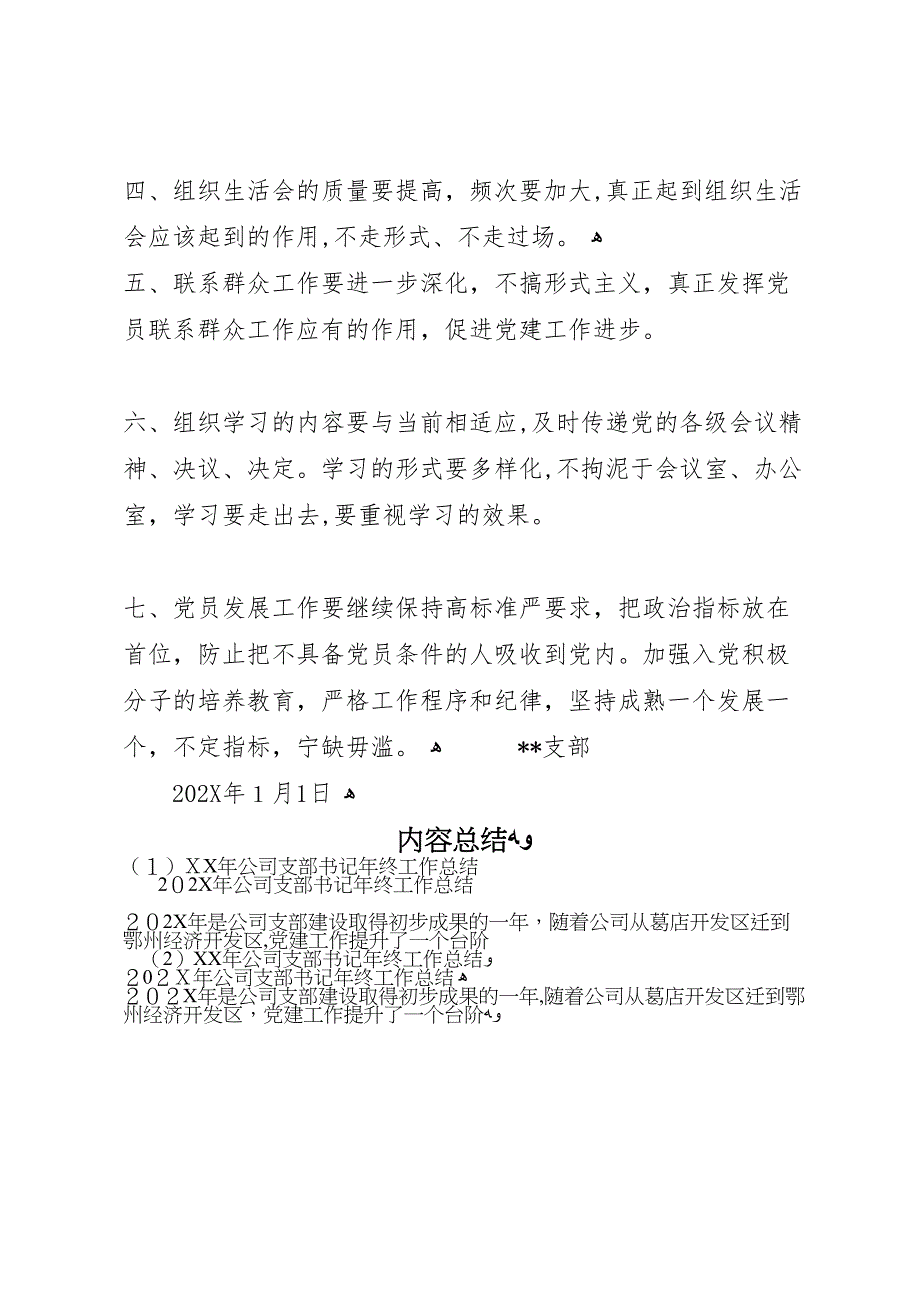 四、组织生活会的质量要提高，频次要加大,真正起到组织生活
会应该起到的作用,不走形式、不走过场。 ﻫ
五、联系群众工作要进一步深化，不搞形式主义，真正发挥党
员联系群众工作应有的作用，促进党建工作进步。
六、组织学习的内容要与当前相适应,及时传递党的各级会议精
神、决议、决定。学习的形式要多样化,不拘泥于会议室、办公
室，学习要走出去,要重视学习的效果。
七、党员发展工作要继续保持高标准严要求，把政治指标放在
首位，防止把不具备党员条件的人吸收到党内。加强入党积极
分子的培养教育，严格工作程序和纪律，坚持成熟一个发展一
个，不定指标，宁缺毋滥。 ﻫ **支部
202X年１月1日 ﻫ
内容总结ﻭﻪ
（１）ＸX年公司支部书记年终工作总结
2０２X年公司支部书记年终工作总结
２０2X年是公司支部建设取得初步成果的一年，随着公司从葛店开发区迁到
鄂州经济开发区,党建工作提升了一个台阶
（2）XX年公司支部书记年终工作总结ﻭ
２0２Ｘ年公司支部书记年终工作总结ﻫ
２０２X年是公司支部建设取得初步成果的一年,随着公司从葛店开发区迁到鄂
州经济开发区，党建工作提升了一个台阶ﻭﻪ